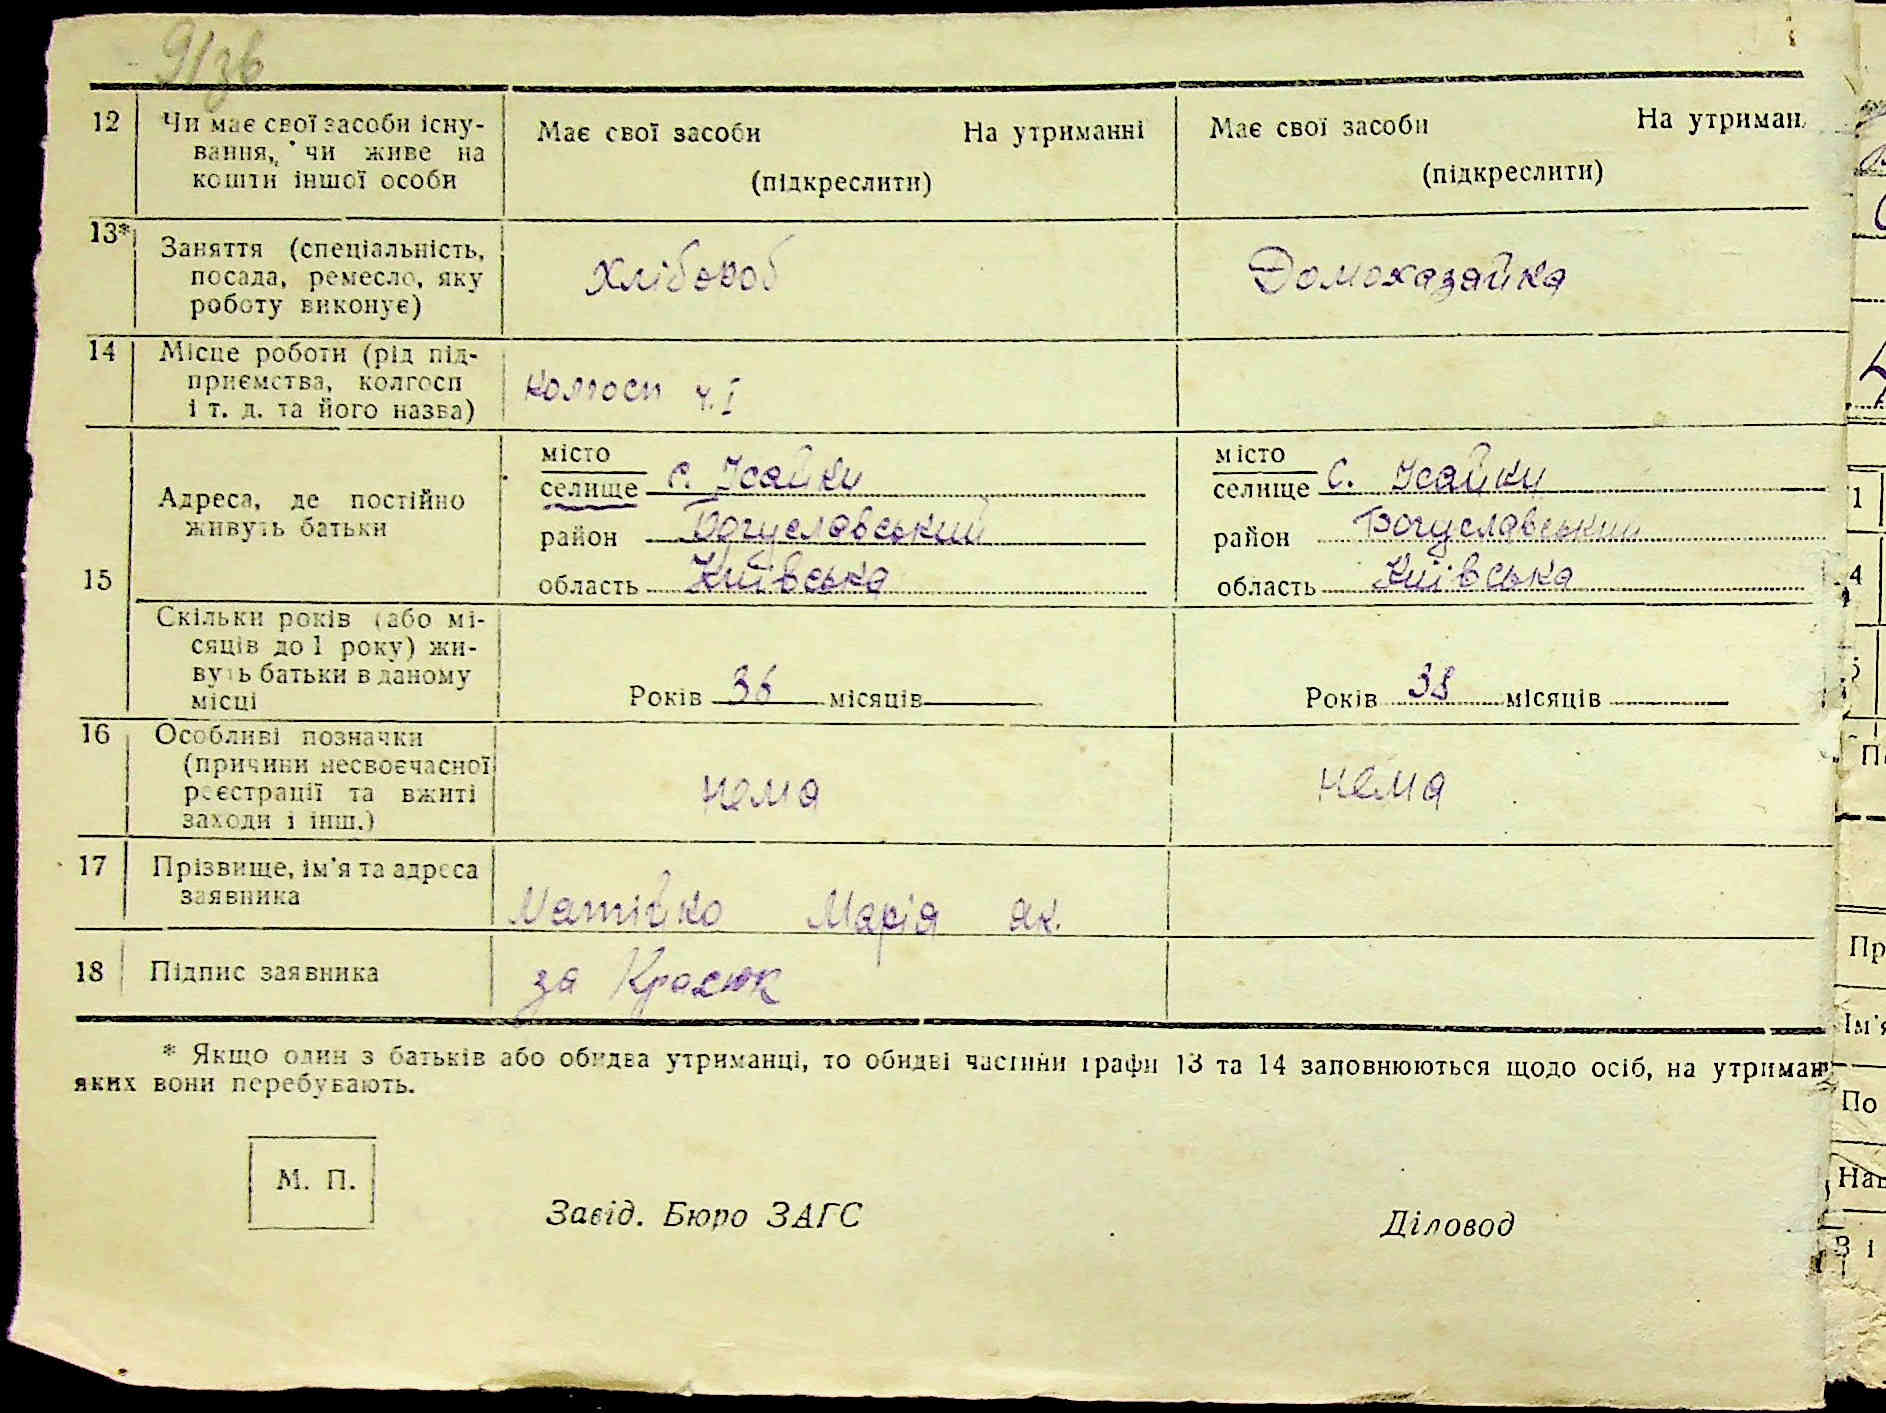 9/зв
12 Чи має свої засоби існу- Має свої засоби На утриманні Має свої засоби На утриман
вання, чи живе на
кошти іншої особи (підкреслити) (підкреслити)
13* Заняття (спеціальність,
посада, ремесло, яку Хлібороб Домохазяйка
роботу виконує)
14 Місце роботи (рід під-
приємства, колгосп колгосп ч. I
і т. д. та його назва)
15 місто місто
Адреса, де постійно селище с. Ісайки селище С. Ісайки
живуть батьки район Богуславський район Богуславський
область Київська область Київська
Скільки років (або мі-
сяців до 1 року) жи-
вуть батьки в даному
місці Років 36 місяців Років 38 місяців
16 Особливі позначки
(причини несвоєчасної
реєстрації та вжиті нема нема
заходи і інш.)
17 Прізвище, ім'я та адреса
заявника Матійко Марія як.
18 Підпис заявника за Красюк
* Якщо один з батьків або обидва утриманці, то обидві частини графи 13 та 14 заповнюються щодо осіб, на утриман
яких вони перебувають.
М. П.
Завід. Бюро ЗАГС Діловод
1
4
5
Пр
Ім'я
По